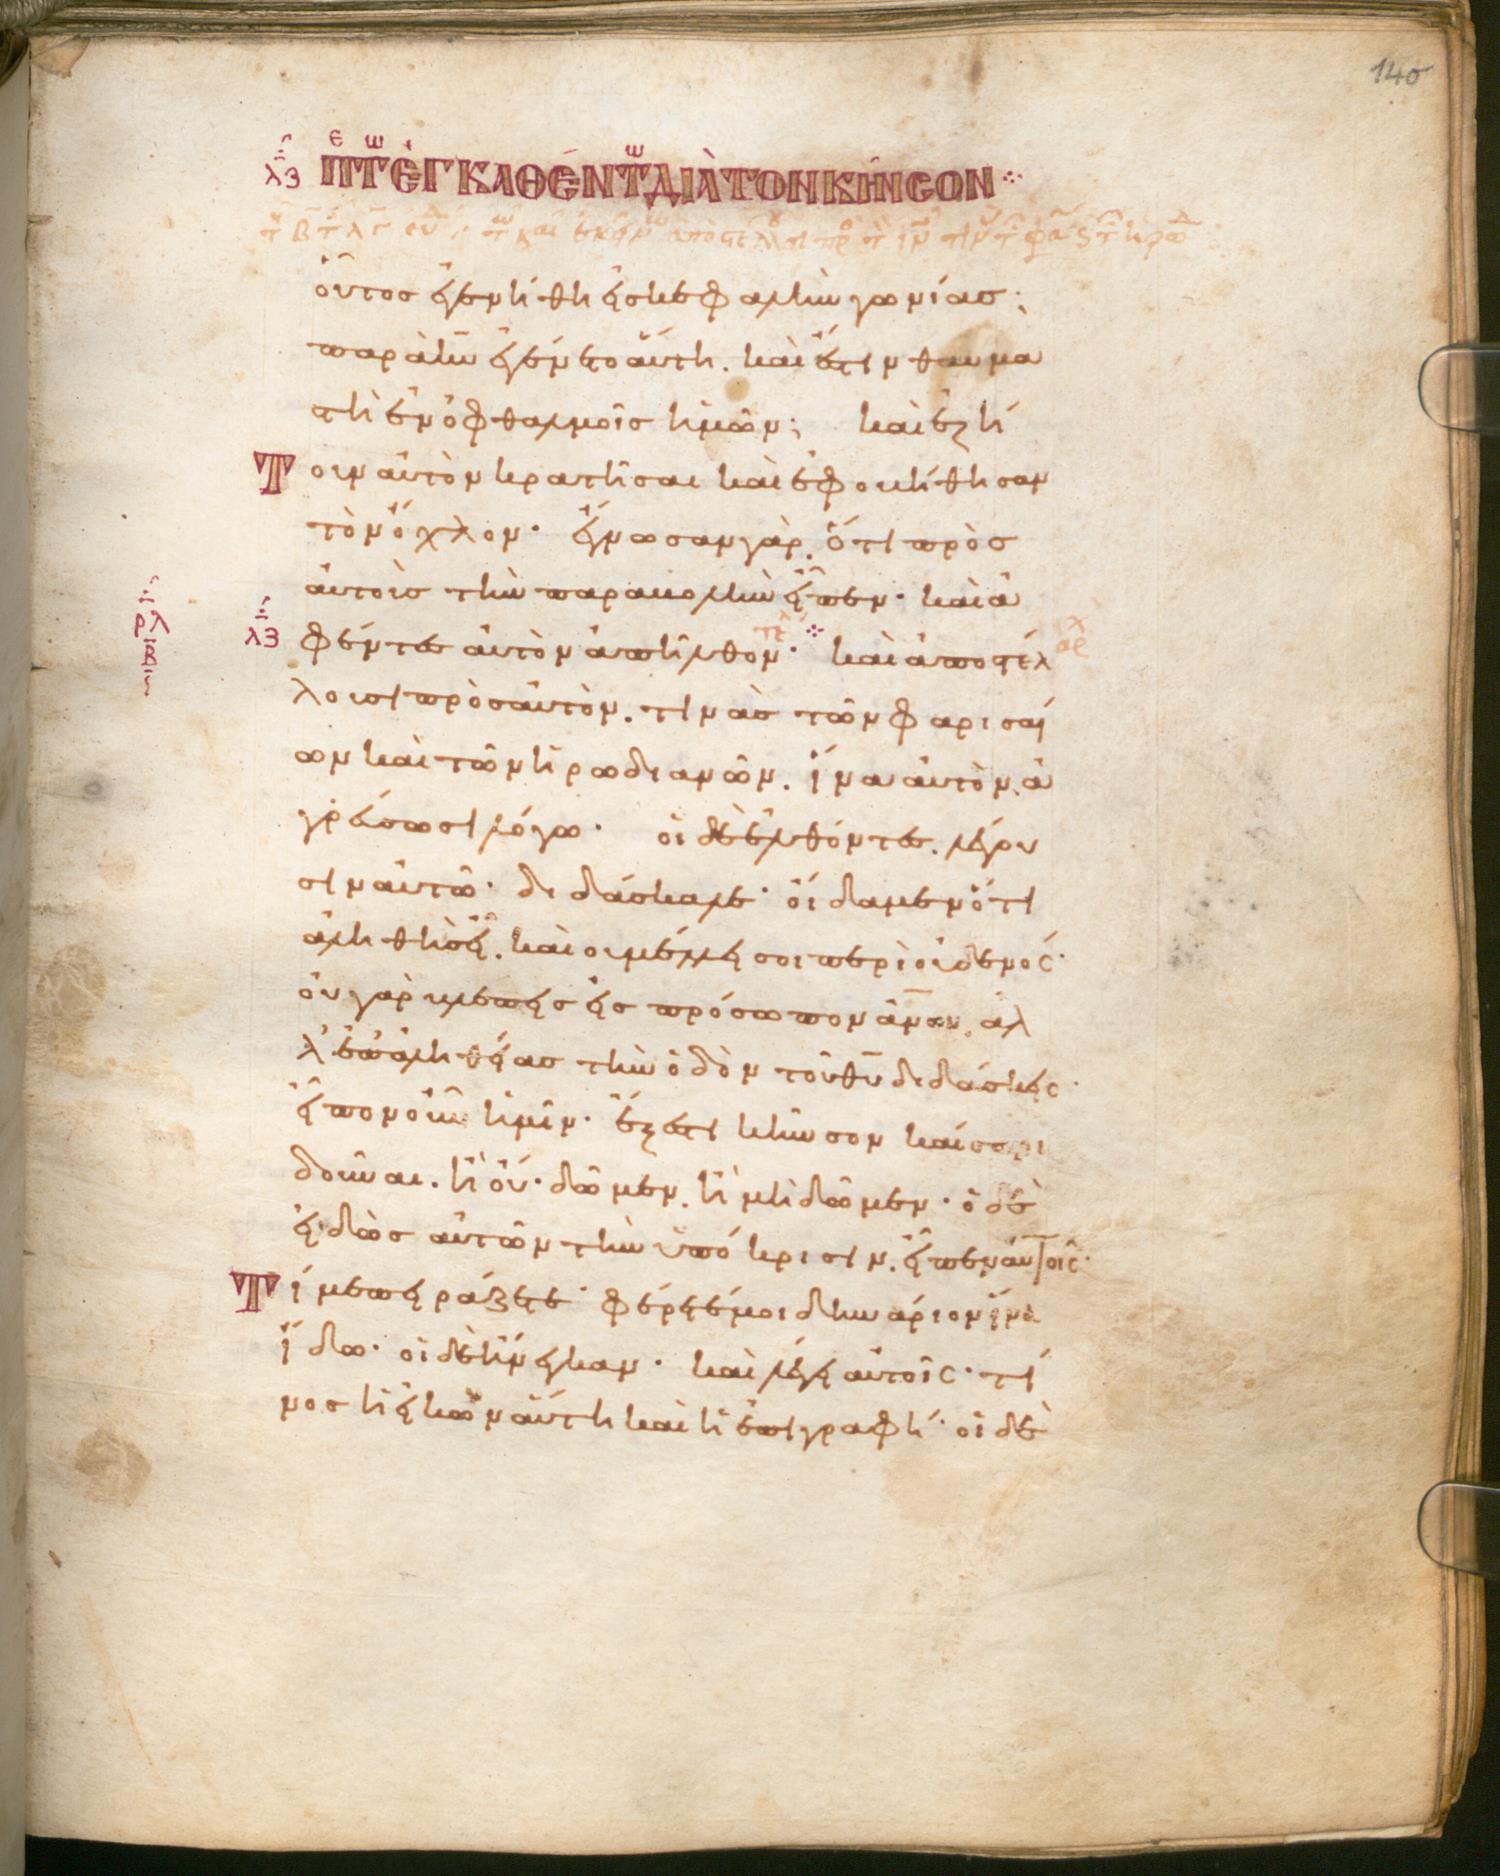 140
λζ ΠΕΤΩ ΕΓΚΑΘΕΝΤΩ ΔΙΑ ΤΟΝ ΚΙΝΣΟΝ
οὗτος ἐγενήθη εἰς κεφαλὴν γωνίας;
παρὰ κῦ ἐγένετο αὕτη. καὶ ἔστιν θαυμα
στὴ ἐν ὀφθαλμοῖς ἡμῶν; καὶ ἐζή
Τουν αὐτὸν κρατῆσαι καὶ ἐφοβήθησαν
τὸν ὄχλον· ἔγνωσαν γὰρ. ὅτι πρὸς
αὐτοὺς τὴν παραβολὴν εἶπεν· καὶ ἀ
λζ φέντες αὐτὸν ἀπῆλθον· καὶ ἀποστέλ
λουσι πρὸς αὐτὸν. τινὰς τῶν φαρισαί
ων καὶ τῶν ἡρωδιανῶν. ἵνα αὐτὸν ἀ
γρεύσωσι λόγω· οἱ δὲ ἐλθόντες. λέγου
σιν αὐτῶ· διδάσκαλε· οἴδαμεν ὅτι
ἀληθὴς εἶ. καὶ οὐ μέλλει σοι περὶ οὐδενός·
οὐ γὰρ βλέπεις εἰς πρόσωπον ἀνων. ἀλ
λ' ἐπ' ἀληθείας τὴν ὁδὸν τοῦ θῦ διδάσκεις·
εἰπὸν οὖν ἡμῖν· ἔξεστι κῆνσον καίσαρι
δοῦναι. ἢ οὔ· δῶμεν. ἢ μὴ δῶμεν· ὁ δὲ
εἰδὼς αὐτῶν τὴν ὑπόκρισιν. εἶπεν αὐτοῖς·
Τί με πειράζετε· φέρετέ μοι δηνάριον ἵνα
ἴδω· οἱ δὲ ἤνεγκαν· καὶ λέγει αὐτοῖς· τί
νος ἡ εἰκὼν αὕτη καὶ ἡ ἐπιγραφή· οἱ δὲ